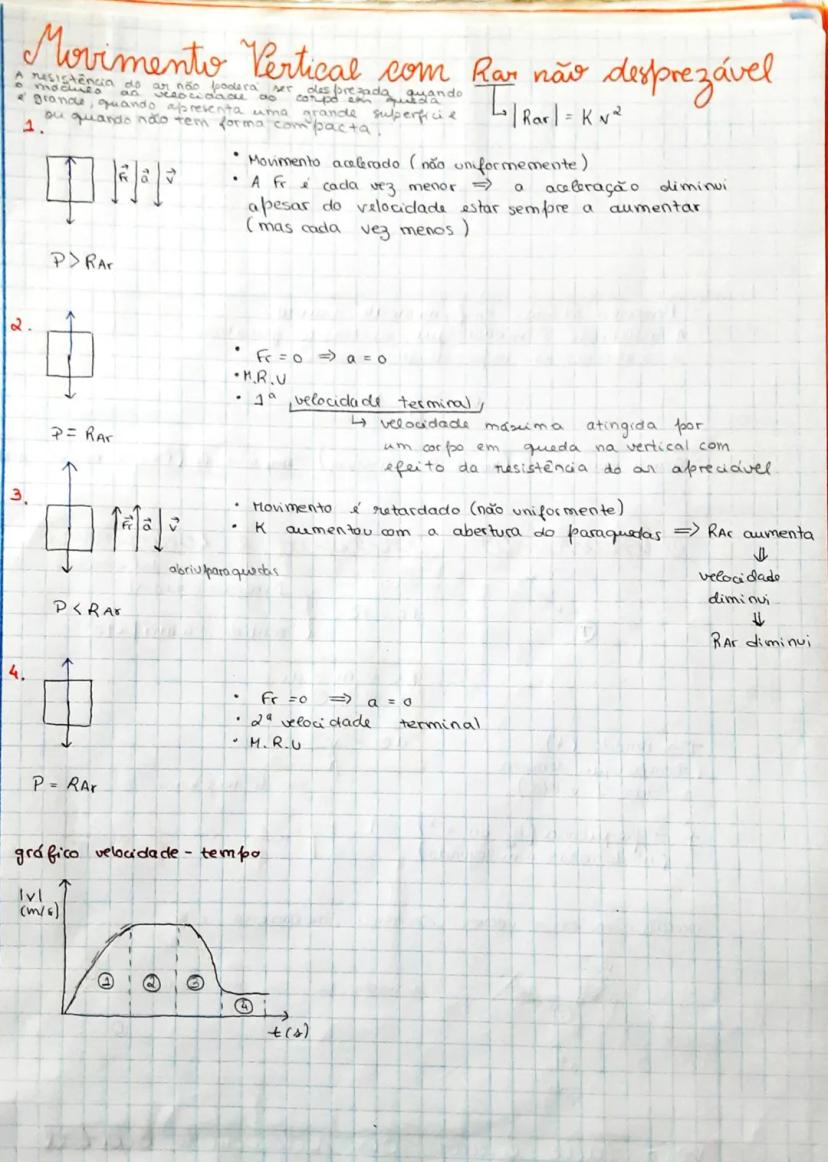 Movimento Vertical com Rar não desprezável
A resistência do ar não poderá ser desprezada quando
o módulo da velocidade do corpo em queda
é grande, quando apresenta uma grande superfície
ou quando não tem forma compacta.
|Rar| = K v²
1.
Fr a v
• Movimento acelerado (não uniformemente)
• A Fr é cada vez menor ⇒ a aceleração diminui
apesar do velocidade estar sempre a aumentar
(mas cada vez menos)
P > RAr
2.
• Fr = 0 ⇒ a = 0
• M.R.U
• 1ª velocidade terminal
↳ velocidade máxima atingida por
um corpo em queda na vertical com
efeito da resistência do ar apreciável
P = RAr
3.
Fr a v
• Movimento é retardado (não uniformente)
• K aumentou com a abertura do paraquedas ⇒ RAr aumenta
⇓
velocidade
diminui
⇓
RAr diminui
abriu paraquedas
P < RAr
4.
• Fr = 0 ⇒ a = 0
• 2ª velocidade terminal
• M.R.U
P = RAr
gráfico velocidade - tempo
|v|
(m/s)
1 2 3 4
t(s)